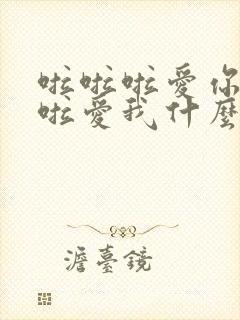 啦啦啦愛你
啦愛我什麼
澹臺鏡